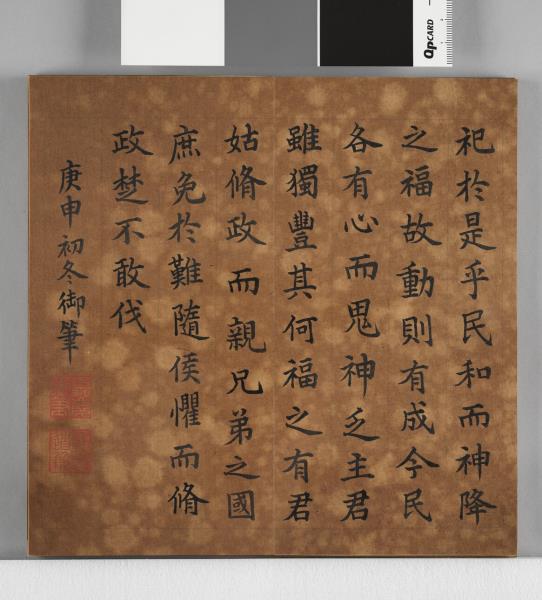 祀於是乎民和而神降
之福故動則有成今民
各有心而鬼神乏主君
雖獨豐其何福之有君
姑脩政而親兄弟之國
庶免於難隨侯懼而脩
政楚不敢伐
庚申初冬御筆
QPCARD